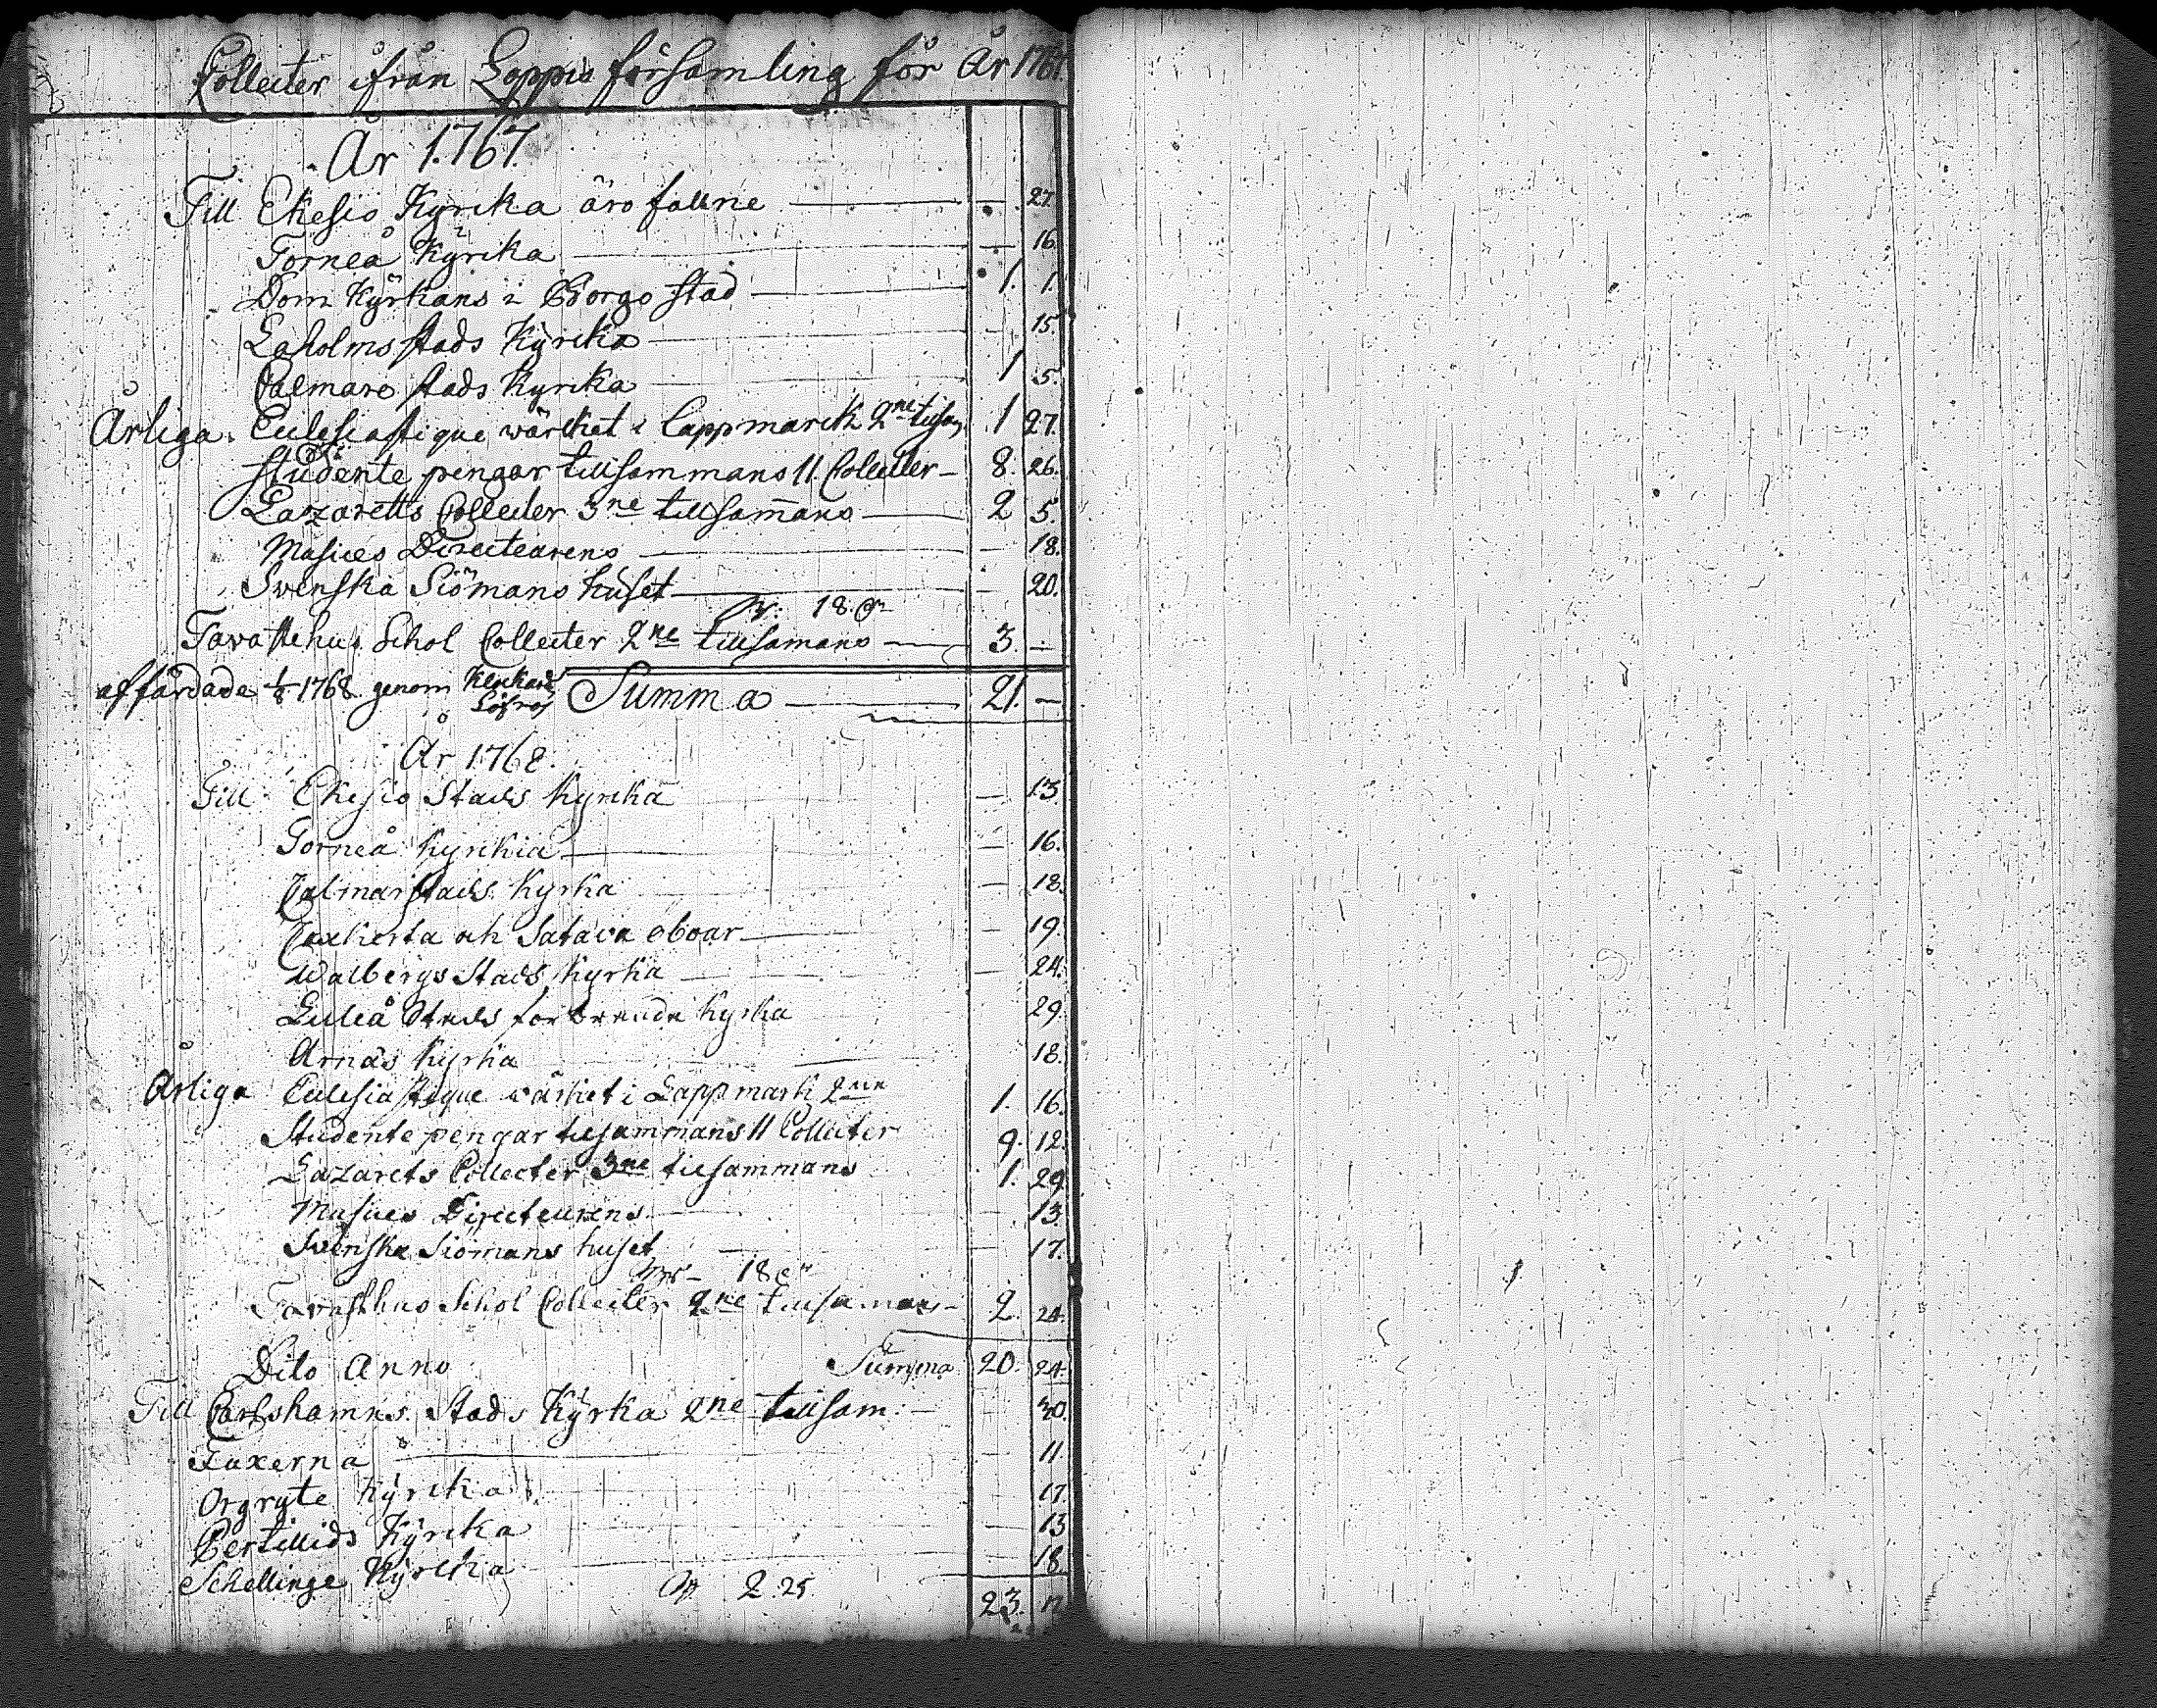 Collecter ifrån Loppis församling för År 1767.
År 1767.
Till Ekesio Kyrcka äro fallne — 27.
Torneå Kyrcka — 16.
Dom Kyrkans i Borgo stad — 1. 1.
Laholms stads Kyrcka — 15.
Calmare stads Kyrcka — 1 5.
Årliga. Ecclesiastique wärcket i Lappmarck 2ne 1 27.
Studente pengar tillsammans 11. Collecter — 8. 26.
Lazaretts Collecter 3ne tillsamans — 2 5.
Musices Directeurens — 18.
Svenska Siömans huset — 20.
18.
Tavastehus Schol Collecter 2ne tillsamans — 3. —
affärdade 1768 genom Summa — 21. —
År 1768.
Till Ekesio Stads Kyrcka — 13.
Torneå Kyrckia — 16.
Calmar Stads Kyrka — 18.
och Satava öboar — 19.
Walbergs Stads Kyrka — 24.
Luleå Stads forbrende Kyrka 29.
Arnäs Kyrka 18.
Årliga Ecclesiastique wärket i Lappmark 2ne 1. 16.
Studente pengar tillsammans 11 Collecter 9. 12.
Lazarets Collecter 3ne tillsammans 1. 29.
Musices Directeurens — 13.
Svenska Siömans huset — 17.
18
Tavasthus Schol Collecter 2ne tillsamans — 2. 24.
Dito Anno Summa 20. 24.
Till Carlshamns Stads Kyrka 2ne tillsam: — 30.
Tuxerna — 11.
Orgryte Kyrcka — 17.
Pertillids Kyrcka — 13
Schellinge Kyrcka — 18.
2. 25 23.